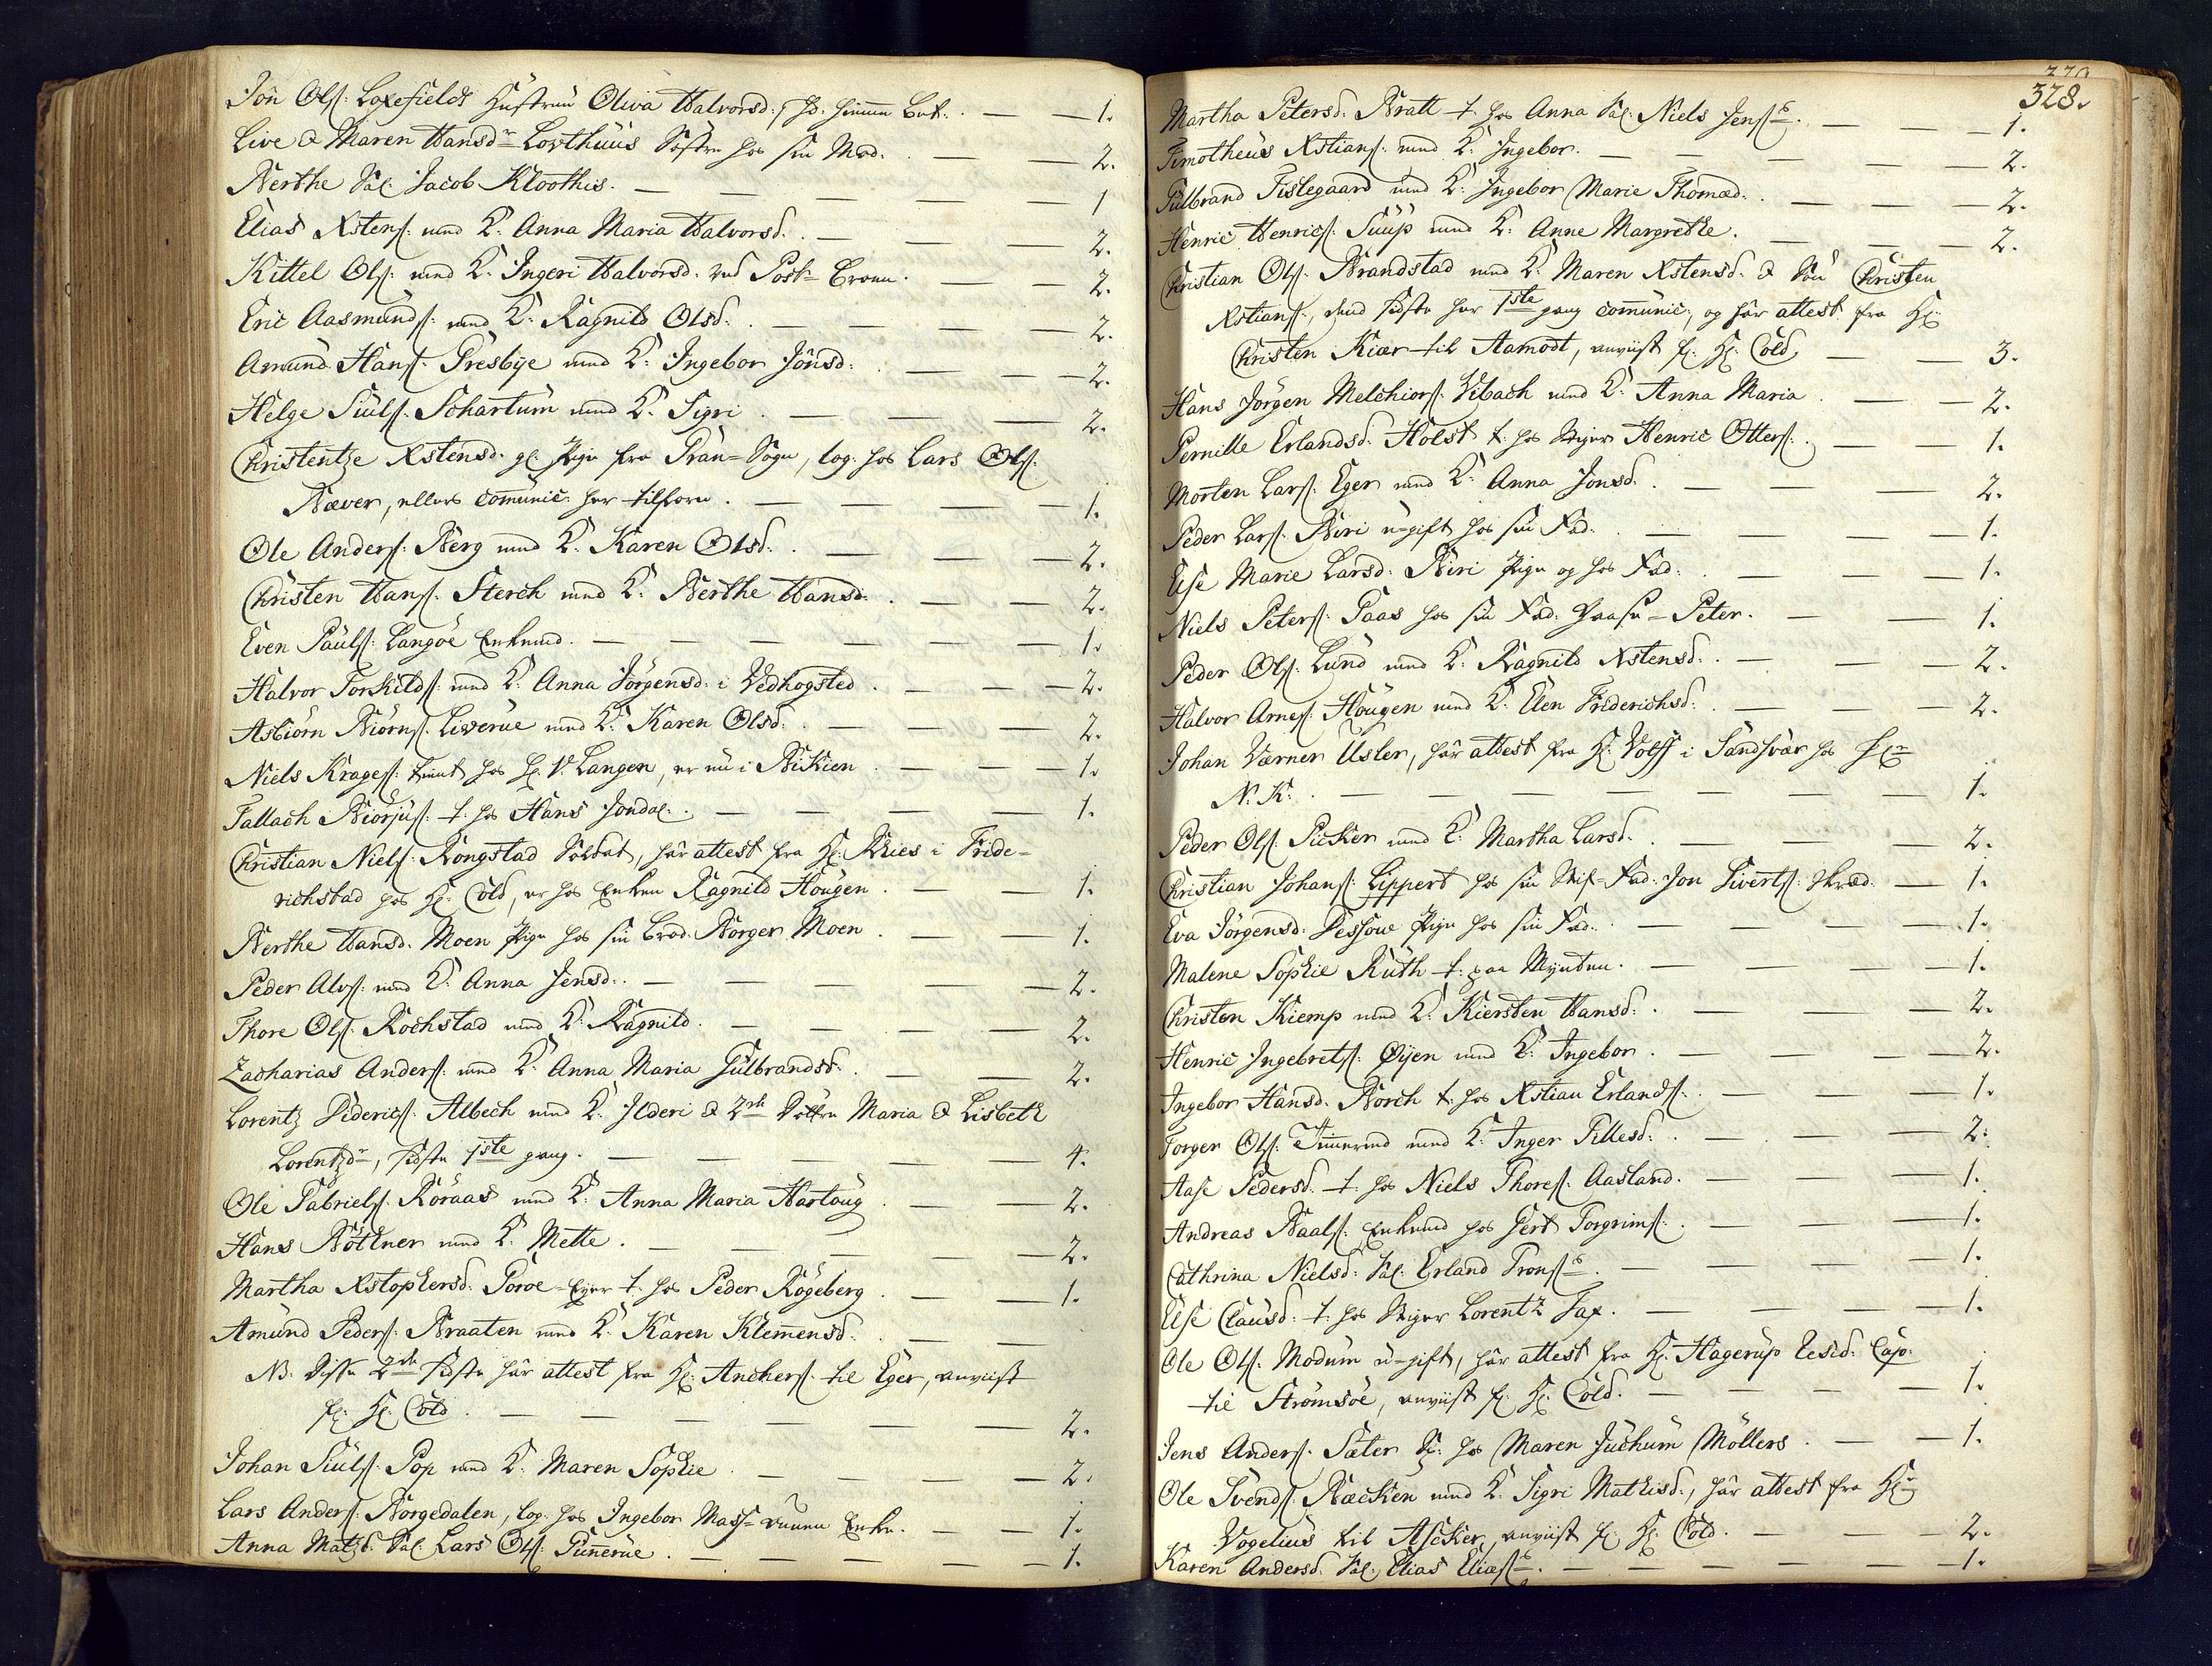 Jon Ols: Loxefields Hustrue Oliva Halvorsd: 1.
Live & Maren Hansd: Lovthuus Søstre hos sin Mod. 2.
Berthe Sal: Jacob Kloothis. 1
Elias Xstens: med K: Anna Maria Halvorsd. 2.
Kittel Ols: med K: Ingeri Halvorsd. ved Post-Broen. 2.
Eric Aasmunds: med K: Ragnild Olsd: 2.
Amund Hans: Presbye med K: Ingebor Jonsd: 2.
Helge Siuls: Schartum med K: Sigri. 2.
Christentze Xstensd. gl: Pige fra Gran-Sogn, log: hos Lars Ols:
Næver, ellers comunic: her tilforn. 1.
Ole Anders: Berg med K: Karen Olsd. 2.
Christen Hans: Sterch med K: Berthe Hansd: 2.
Even Pauls: Langøe Enkemd. 1.
Halvor Torkilds: med K: Anna Jørgensd: i Vedhogsted. 2.
Asbiørn Biørns: Liverue med K: Karen Olsd: 2.
Niels Krages: tient hos Hr: V: Langen, er nu i Bickien 1.
Tallach Biørjus: t. hos Hans Jondal. 1.
Christian Niels: Rongstad Soldat, har attest fra Hr: Bties i Fride-
richstad hos Hr: Cold, er hos Enken Ragnild Hougen. 1.
Berthe Hansd. Moen Pige hos sin Brod. Børger Moen. 1.
Peder Alvs: med K: Anna Jensd: 2.
Thore Ols: Rochstad med K: Ragnild. 2.
Zacharias Anders: med K: Anna Maria Gulbrandsd. 2.
Lorentz Siderics: Albech med K: Ilderi & 2de Døttre Maria & Lisbeth
Lorentzdr, sidste 1ste gang. 4.
Ole Gabriels: Røraas med K: Anna Maria Hartoug 2.
Hans Bøttner med K: Mette. 2.
Martha Xstophersd: t. hos Peder Røgeberg. 1.
Amund Peders: Braaten med K: Karen Klemensd.
NB: disse 2de sidste har attest fra Hr: Anchers: til Eger, anviist
fr: Hr: Cold. 2.
Johan Siuls: Pop med K: Maren Sophie 2.
Lars Anders: Norgedalen, log: hos Ingebor Mass- Enke. 1.
Anna Matzd: Sal: Lars Ols: Gunnerue. 1.
328.
Martha Petersd. Bratt t. hos Anna Sal: Niels Jens: 1.
Timotheus Xstians: med K: Ingebor. 2.
Gulbrand Tislegaard med K: Ingebor Marie Thomæd: 2.
Henric Henrics: Suup med K: Anne Margrethe. 2.
Christian Ols: Brandstad med K: Maren Xstensd: & Søn Christen
Xstians:, dend sidste har 1ste gang comunic:, og har attest fra Hr:
Christen Kiær til Aamodt, anviist fr: Hr: Cold 3.
Hans Jørgen Melchiors: Vibach med K: Anna Maria 2.
Pernille Erlandsd: Holst t. hos Stiger Henric Otters: 1.
Morten Lars: Eger med K: Anna Jonsd. 2.
Peder Lars: Biri u-gift hos sin Fad. 1.
Else Marie Larsd: Biri Pige og hos Fad: 1.
Niels Peters: Paas hos sin Fad. Paase-Peter. 1.
Peder Ols: Lund med K: Ragnild Xstensd: 2.
Halvor Arnes: Hougen med K: Elen Friderichsd: 2.
Johan Værner Usler, har attest fra Hr: Volff i Sandsvær hos Hr:
N: K: 1.
Peder Ols: Picker med K: Martha Larsd. 2.
Christian Johans: Lippert hos sin Stif-Fad: Jon Siverts: Skræd. 1.
Eva Jørgensd: Dessoue Pige hos sin Fad. 1.
Malene Sophie Ruth t: paa Mynten. 1.
Christen Kiemp med K: Kiersten Hansd: 2.
Henric Ingebrets: Øyen med K: Ingebor. 2.
Ingebor Hansd: Borch t. hos Xstian Erlands: 1.
Torger Ols: Timermd med K: Inger Pillesd: 2.
Aase Pedersd. t. hos Niels Thores: Aasland. 1.
Andreas Baals: Enkemd hos Gert Torgrims: 1.
Cathrina Nielsd: Sal: Erland Trons: 1.
Else Clausd: t. hos Stiger Lorentz Fax. 1.
Ole Ols: Modum u-gift, har attest fra Hr: Hagerup Resid: Cap:
til Strømsøe, anviist fr: Hr: Cold. 1.
Jens Anders: Sæter hos Maren Juchum Møllers. 1.
Ole Svends: Bæcken med K: Sigri Mathisd:, har attest fra Hr:
Vogelius til Ascker, anviist fr: Hr: Cold. 2.
Karen Andersd. Sal: Elias Elias: 1.